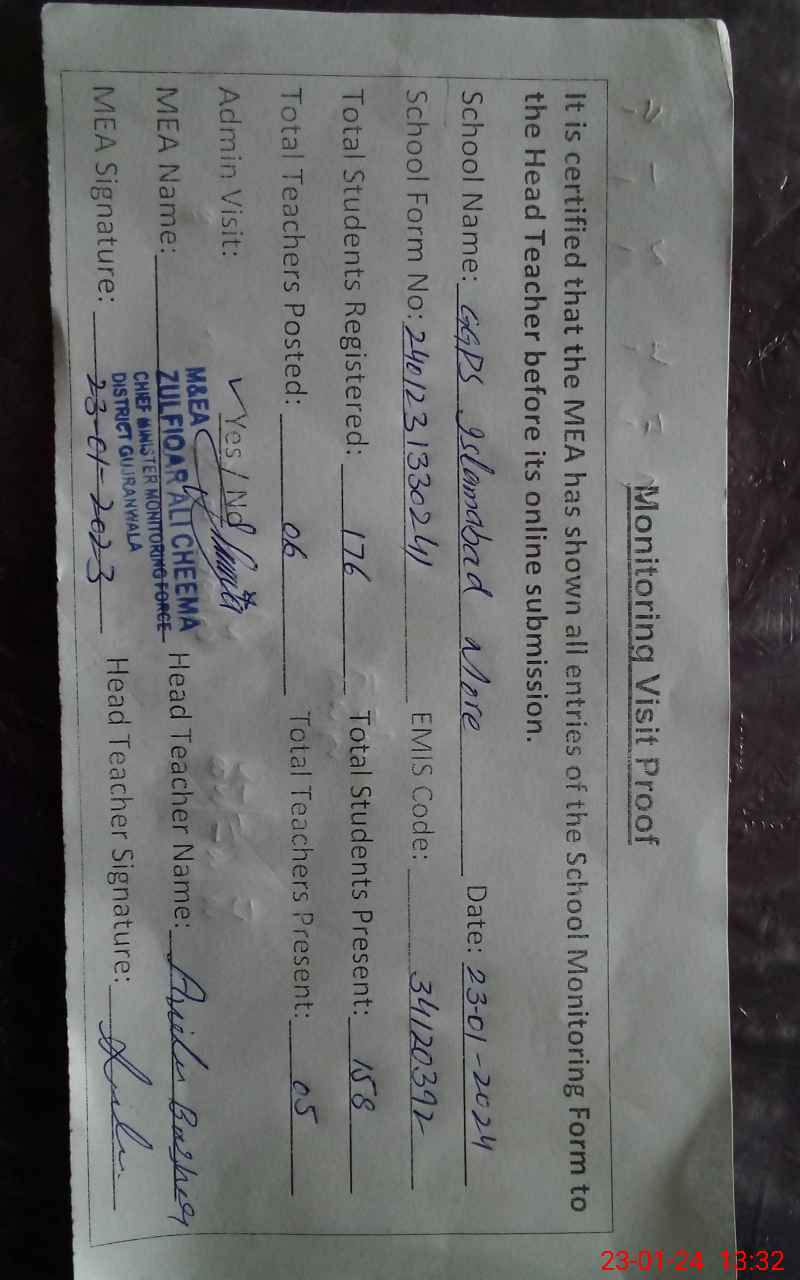 Monitoring Visit Proof
It is certified that the MEA has shown all entries of the School Monitoring Form to
the Head Teacher before its online submission.
School Name: GGPS Islamabad More Date: 23-01-2024
School Form No: 240123133024 EMIS Code: 34120392
Total Students Registered: 176 Total Students Present: 158
Total Teachers Posted: 06 Total Teachers Present: 05
Admin Visit: ✓Yes / No
M&EA
MEA Name: ZULFIQAR ALI CHEEMA Head Teacher Name: Bashir
CHIEF MINISTER MONITORING FORCE
DISTRICT GUJRANWALA
MEA Signature: 23-01-2023 Head Teacher Signature:
23-01-24 13:32